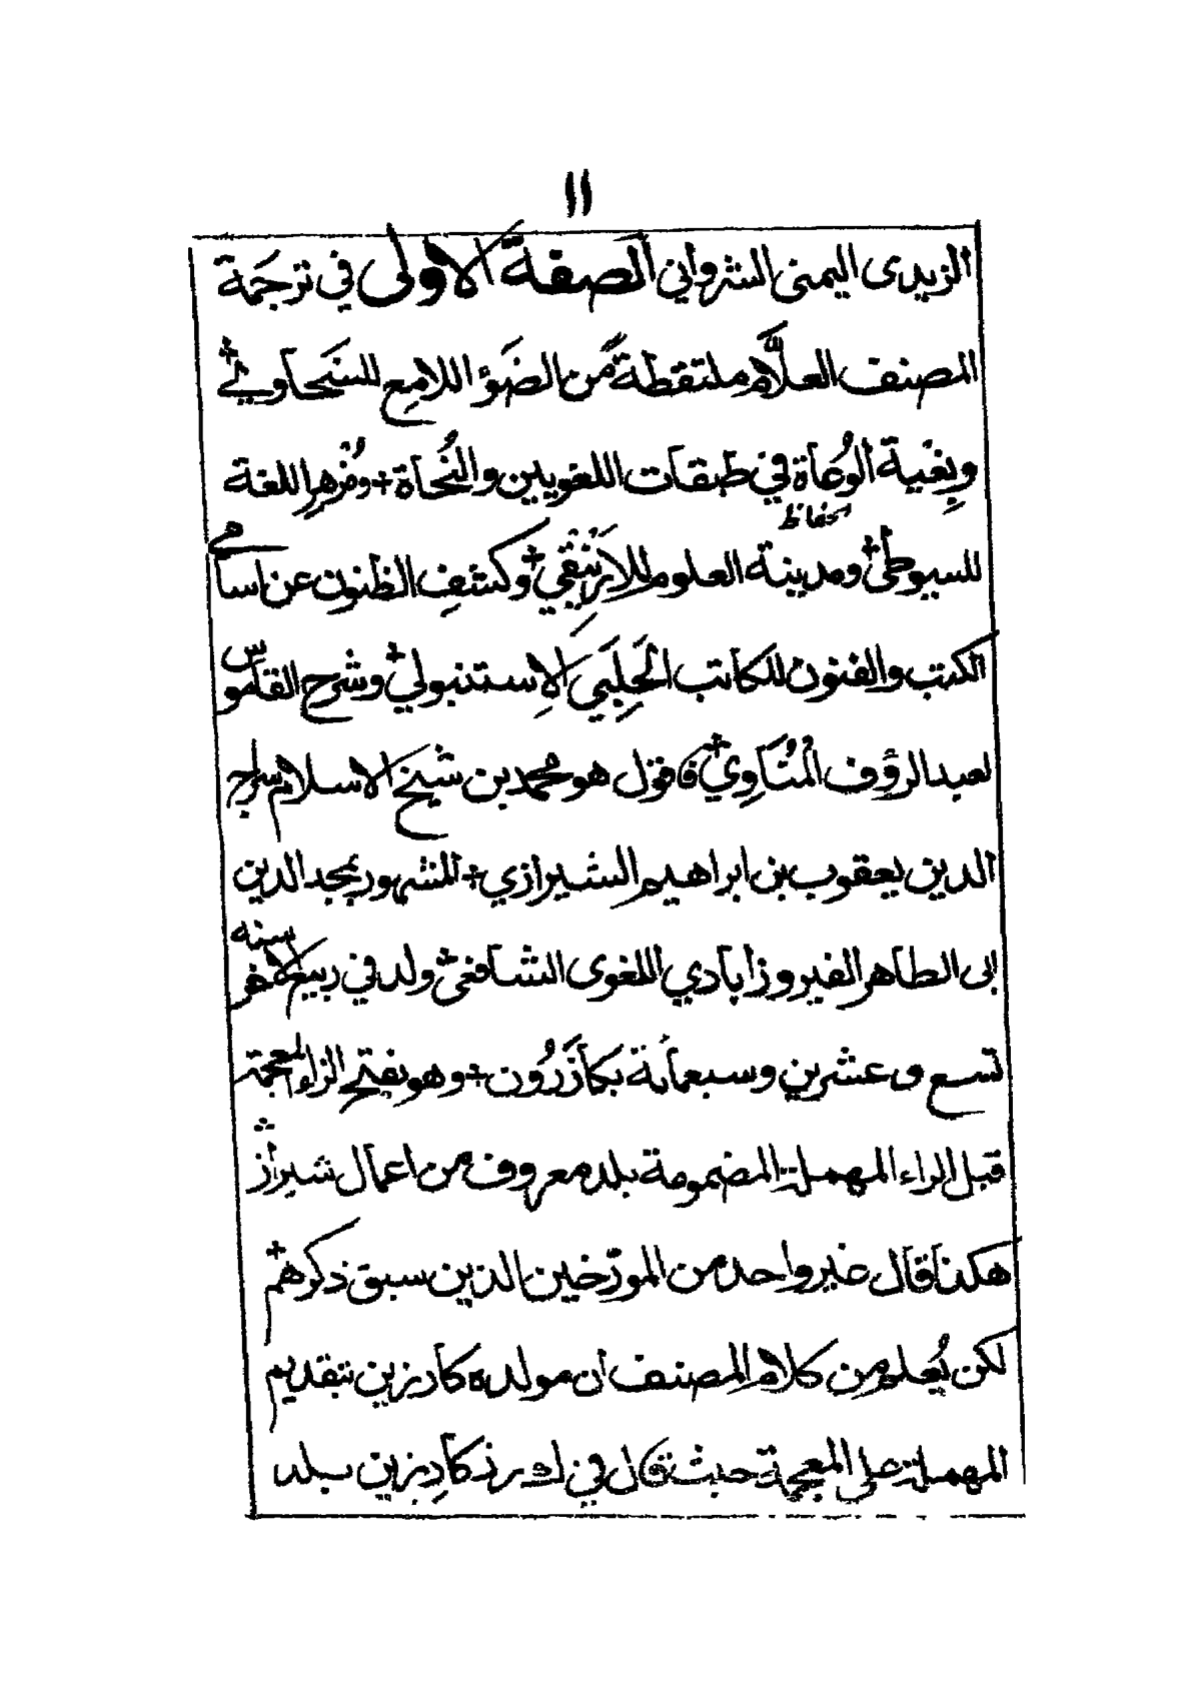 ١١
الزبيدى اليمنى الشرواني الصفة الاولى في ترجمة
المصنف العلّام ملتقطةً من الضوء اللامع للسخاوي
وبغية الوُعاة في طبقات اللغويين والنُحاة + ومُزهر اللغة
للحفاظ
للسيوطي ومدينة العلوم للارنيقي وكشف الظنون عن اسامي
الكتب والفنون للكاتب الچلبي الاستنبولي وشرح القاموس
لعبد الرؤف المُنَاوِي فاقول هو محمد بن شيخ الاسلام سراج
الدين يعقوب بن ابراهيم الشيرازي + المشهور بمجد الدين
ابى الطاهر الفيروزآبادي اللغوى الشافعى ولد في ربيع الآخر سنه
تسع وعشرين وسبعمائة بكازَرُون + وهو بفتح الزاء المعجمة
قبل الراء المهملة المضمومة بلد معروف من اعمال شيراز
هكذا قال غير واحد من المورّخين الذين سبق ذكرهم
لكن يُعلم من كلام المصنف ان مولده كارزين بتقديم
المهملة على المعجمة حيث قال في ك ر ز كارِزين بلد